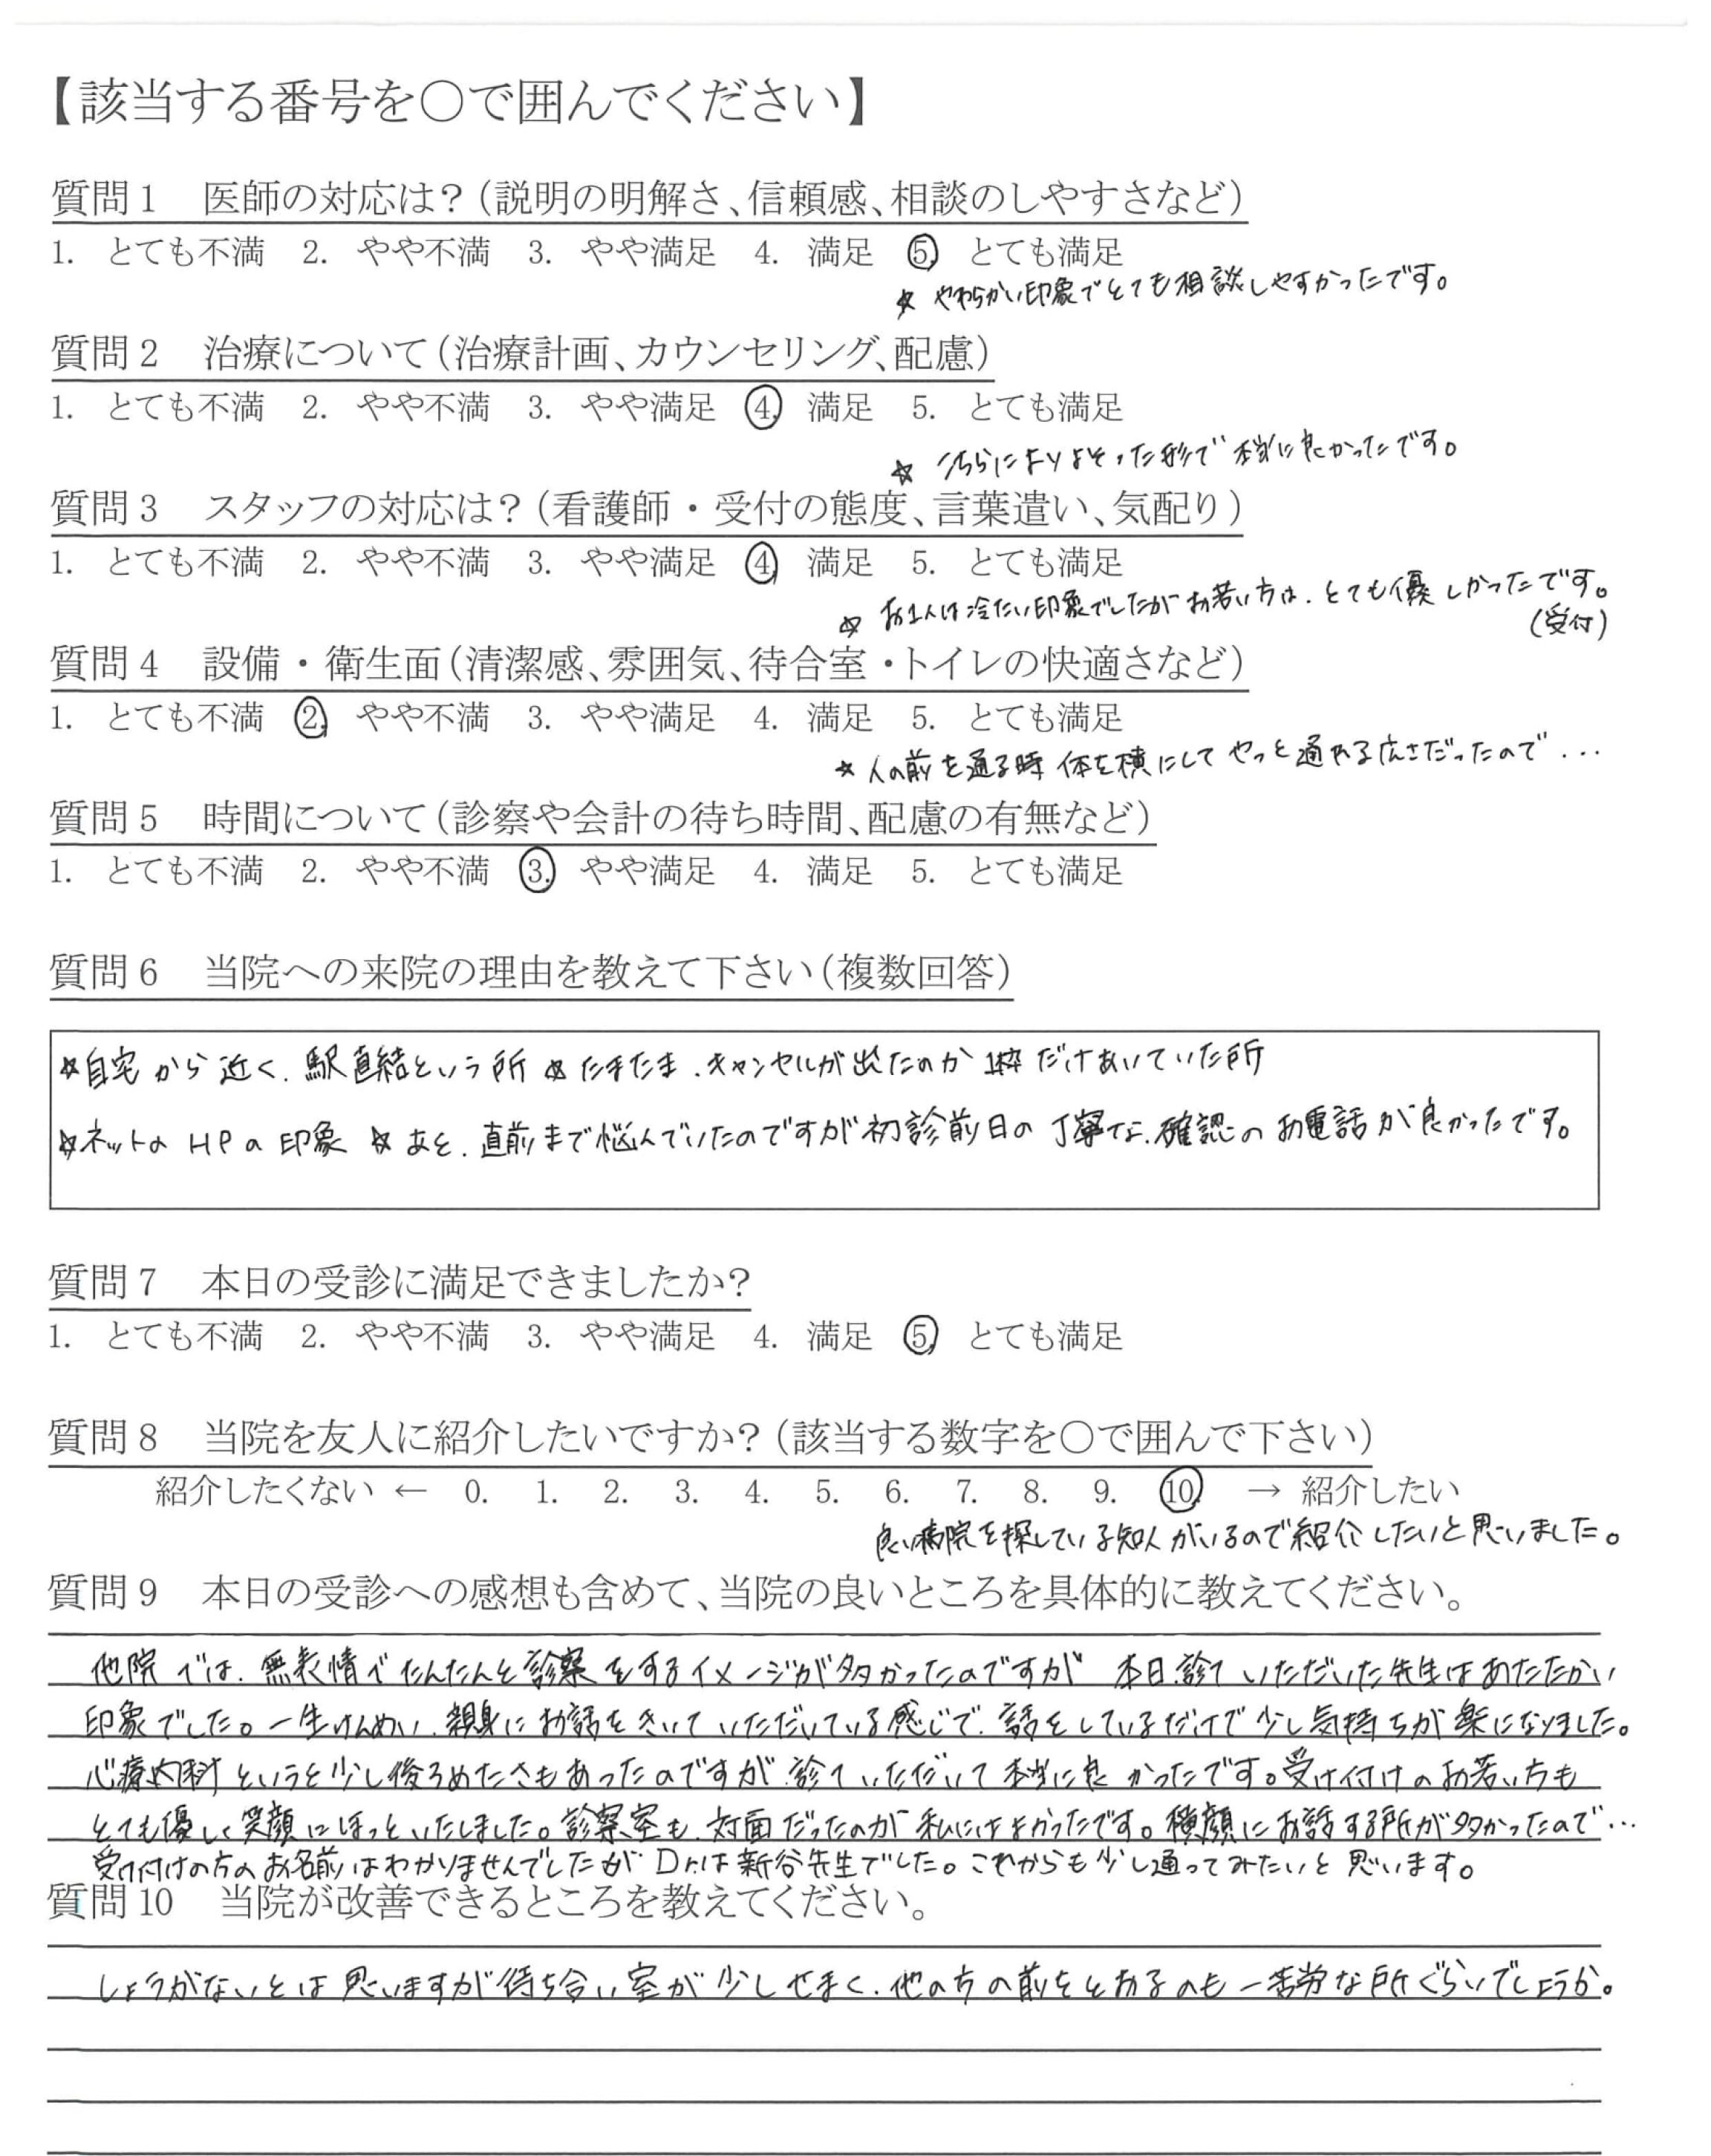 【該当する番号を〇で囲んでください】
質問1　医師の対応は？（説明の明解さ、信頼感、相談のしやすさなど）
1. とても不満　2. やや不満　3. やや満足　4. 満足　5. とても満足
☆ やわらかい印象でとても相談しやすかったです。
質問2　治療について（治療計画、カウンセリング、配慮）
1. とても不満　2. やや不満　3. やや満足　4. 満足　5. とても満足
☆ こちらによりよそった形で本当に良かったです。
質問3　スタッフの対応は？（看護師・受付の態度、言葉遣い、気配り）
1. とても不満　2. やや不満　3. やや満足　4. 満足　5. とても満足
☆ お1人は冷たい印象でしたがお若い方は、とても優しかったです。
（受付）
質問4　設備・衛生面（清潔感、雰囲気、待合室・トイレの快適さなど）
1. とても不満　2. やや不満　3. やや満足　4. 満足　5. とても満足
☆ 人の前を通る時 体を横にしてやっと通れる広さだったので...
質問5　時間について（診察や会計の待ち時間、配慮の有無など）
1. とても不満　2. やや不満　3. やや満足　4. 満足　5. とても満足
質問6　当院への来院の理由を教えて下さい（複数回答）
☆自宅から近く、駅直結という所 ☆たまたま、キャンセルが出たのか1枠だけあいていた所
☆ネットのHPの印象 ☆あと、直前まで悩んでいたのですが初診前日の丁寧な、確認のお電話が良かったです。
質問7　本日の受診に満足できましたか？
1. とても不満　2. やや不満　3. やや満足　4. 満足　5. とても満足
質問8　当院を友人に紹介したいですか？（該当する数字を〇で囲んで下さい）
紹介したくない ← 0. 1. 2. 3. 4. 5. 6. 7. 8. 9. 10. → 紹介したい
良い病院を探している知人がいるので紹介したいと思いました。
質問9　本日の受診への感想も含めて、当院の良いところを具体的に教えてください。
他院では、無表情でたんたんと診察をするイメージが多かったのですが 本日、診ていただいた先生はあたたかい
印象でした。一生けんめい、親身にお話をきいていただいている感じで、話をしているだけで少し気持ちが楽になりました。
心療内科というと少し後ろめたさもあったのですが、診ていただいて本当に良かったです。受け付けのお若い方も
とても優しく笑顔にほっといたしました。診察室も、対面だったのが私にはよかったです。横顔にお話する所が多かったので...
受け付けの方のお名前はわかりませんでしたが Dr.は新谷先生でした。これからも少し通ってみたいと思います。
質問10　当院が改善できるところを教えてください。
しょうがないとは思いますが待ち合い室が少しせまく、他の方の前をとおるのも一苦労な所ぐらいでしょうか。